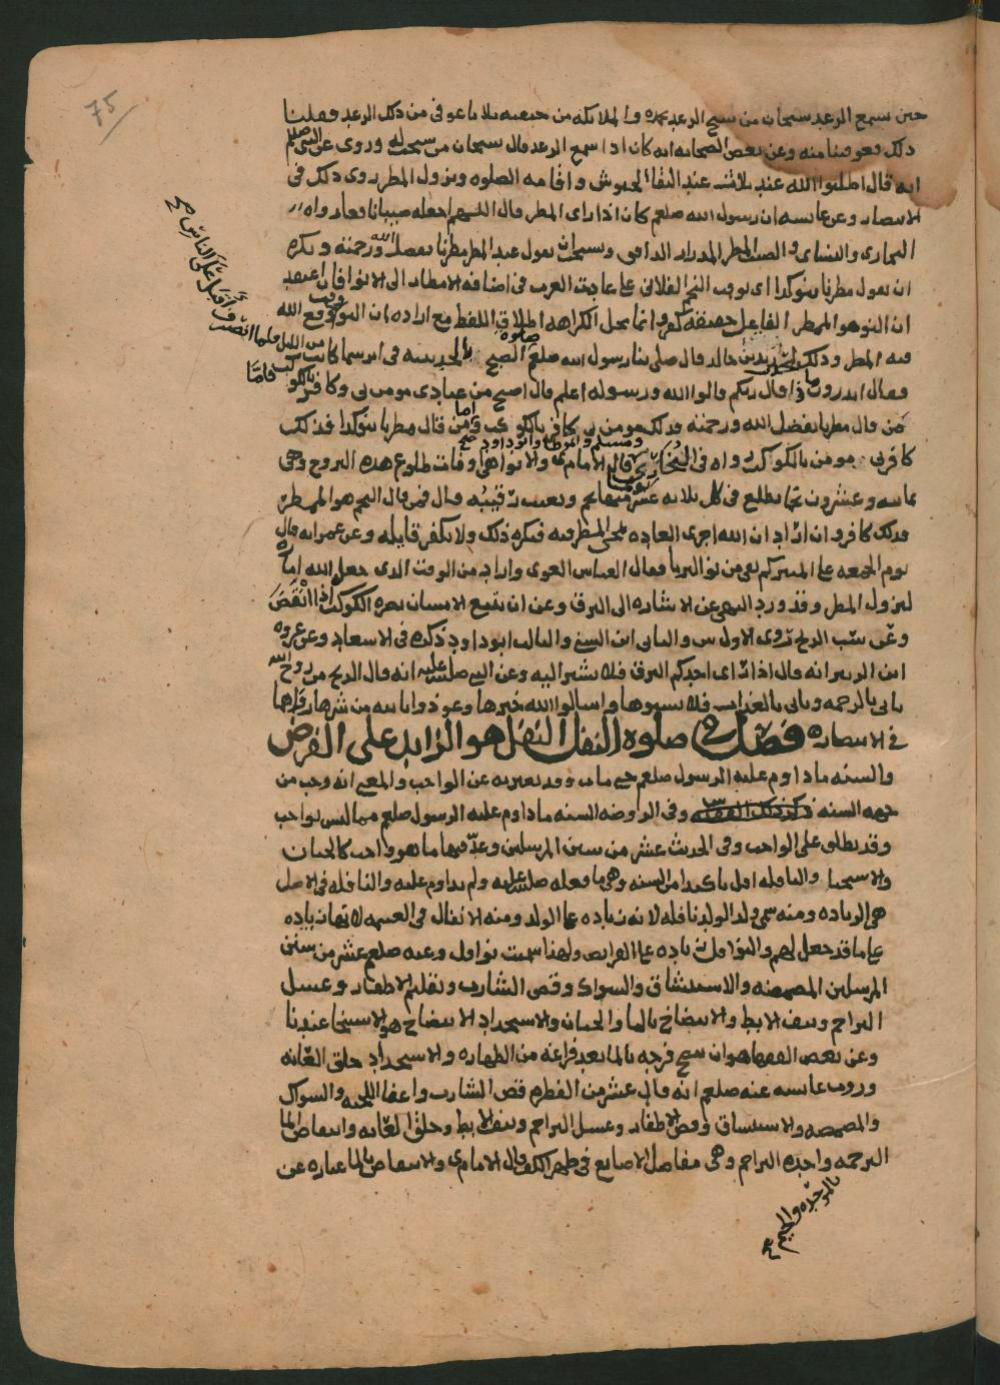 75
حين سمع الرعد سبحان من سبح الرعد بحمده والملائكة من خيفته ثلاثا عوفي من ذلك الرعد فقلنا
ذلك فعوفينا منه وعن بعض الصحابه انه كان اذا سمع الرعد قال سبحان من سبحت له وروي عن النبي صلعم
انه قال اطلبوا الله عند ثلاث عند التقاء الجيوش واقامة الصلوه ونزول المطر روى ذلك في
الانتصار وعن عايشه ان رسول الله صلعم كان اذا راى المطر قال اللهم اجعله صيبا نافعا رواه
البخاري والنساى والصيب المطر المدرار الدافق ويستحب ان يقول عند المطر مطرنا بفضل الله ورحمته ويكره
ان يقول مطرنا بنو كذا اى بوقت النجم الفلاني على عادت العرب في اضافة الامطار الى الانوا فان اعتقد
ان النو هو الممطر الفاعل حقيقة كفر وانما محل الكراهه اطلاق اللفظ مع اراده ان النو وقت اوقع الله
فيه المطر وذلك لخبر زيد بن خالد قال صلى بنا رسول الله صلعم صلوة الصبح بالحديبيه في اثر سما كانت من الليل فلما انصرف واقبل على الناس صح
فقال اتدرون ماذا قال ربكم قالوا الله ورسوله اعلم قال اصبح من عبادي مومن بى وكافر بالكوكب فاما
من قال مطرنا بفضل الله ورحمته فذلك مومن بى كافر بالكوكب واما من قال مطرنا بنو كذا فذلك
كافر بى مومن بالكوكب رواه في البخاري ومسلم والموطا وابو داود صح قال الامام ى والانوا هى اوقات طلوع هذه البروج وهى
ثمانيه وعشرون نجما يطلع في كل ثلاثه عشر يوما منها نجم ويغيب رقيبه قال فمن قال النجم هو الممطر
فذلك كافر وان اراد ان الله اجرى العاده بمجى المطر فيه فيكره ذلك ولا يكفر قايله وعن عمر انه قال
يوم الجمعه على المنبر كم بقى من نو الثريا فقال العباس العوى واراد من الوقت الذى جعل الله اماره
لنزول المطر وقد ورد النهى عن الاشاره الى البرق وعن ان يتبع الانسان بصره الكوكب اذا انقض
وعن سب الريح روى الاول س والثانى ابن السنى والثالث ابو داود ذكره في الاسعاد وعن عروه
ابن الزبير انه قال اذا راى احدكم البرق فلا يشير اليه وعن النبي صلى الله عليه انه قال الريح من روح الله
ياتى بالرحمه وياتى بالعذاب فلا تسبوها واسالوا الله خيرها وعوذوا بالله من شرها رواها
في الانتصار ه فصل في صلوة النفل النفل هو الزايد على الفرض
والسنه ما داوم عليه الرسول صلعم حتى مات وقد يعبر به عن الواجب والمعنى انه وجب من
جهه السنه ذكر ذلك الفقيه س وفي الروضه السنه ما داوم عليه الرسول صلعم مما ليس بواجب
وقد يطلق على الواجب وفي الحديث عشر من سنن المرسلين وعد فيها ما هو واجب كالختان
والاستنجا والنافله اقل تاكيدا من السنه وهى ما فعله صلى الله عليه ولم يداوم عليه والنافله في الاصل
هى الزياده ومنه سمى ولد الولد نافله لانه زياده على الولد ومنه الانفال في الغنيمه لانها زياده
على ما قد جعل لهم والنوافل زياده على الفرايض ولهذا سميت نوافل وعنه صلعم عشر من سنن
المرسلين المضمضه والاستنشاق والسواك وقص الشارب وتقليم الاظفار وغسل
البراجم ونتف الابط والانتضاح بالما والختان والاستحداد الانتضاح هو الاستنجا عندنا
وعن بعض الفقها هو ان ينضح فرجه بالما بعد فراغه من الطهاره والاستحداد حلق العانه
وروت عايشه عنه صلعم انه قال عشر من الفطره قص الشارب واعفا اللحيه والسواك
والمضمضه والاستنشاق وقص الاظفار وغسل البراجم ونتف الابط وحلق العانه وانتقاص الما
البرجمه واحده البراجم وهى مفاصل الاصابع في ظهر الكف قال الامام ى والانتقاص بالما عباره عن